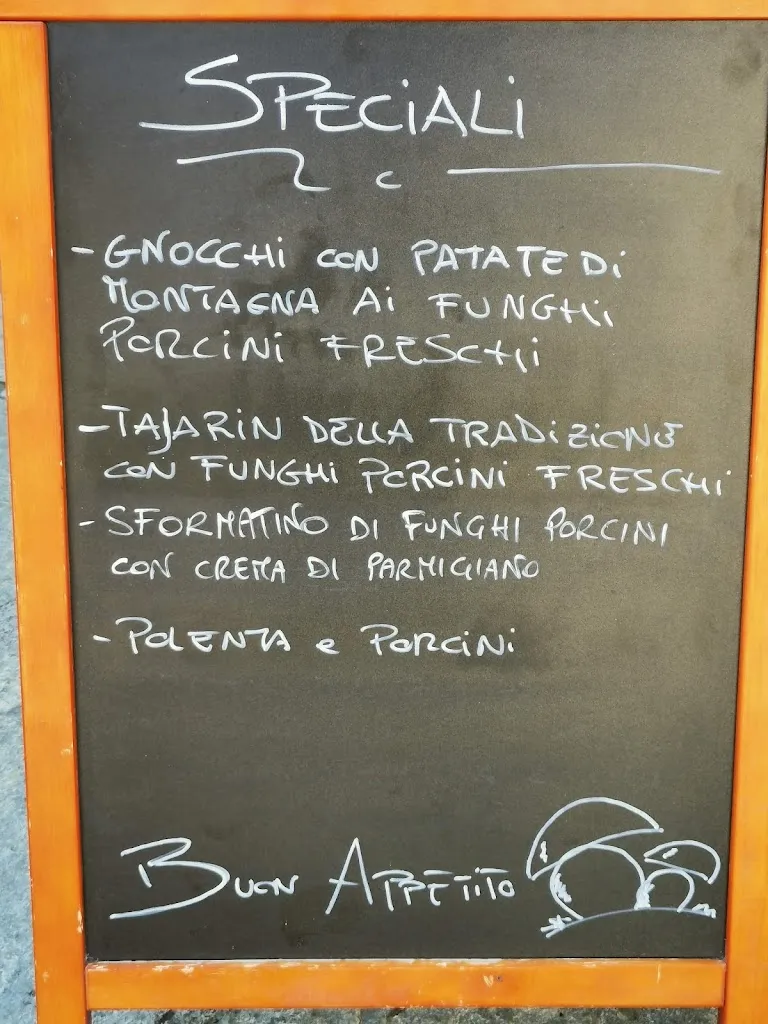 SPECIALI
- GNOCCHI CON PATATE DI
MONTAGNA AI FUNGHI
PORCINI FRESCHI
- TAJARIN DELLA TRADIZIONE
CON FUNGHI PORCINI FRESCHI
- SFORMATINO DI FUNGHI PORCINI
CON CREMA DI PARMIGIANO
- POLENTA e PORCINI
BUON APPETITO